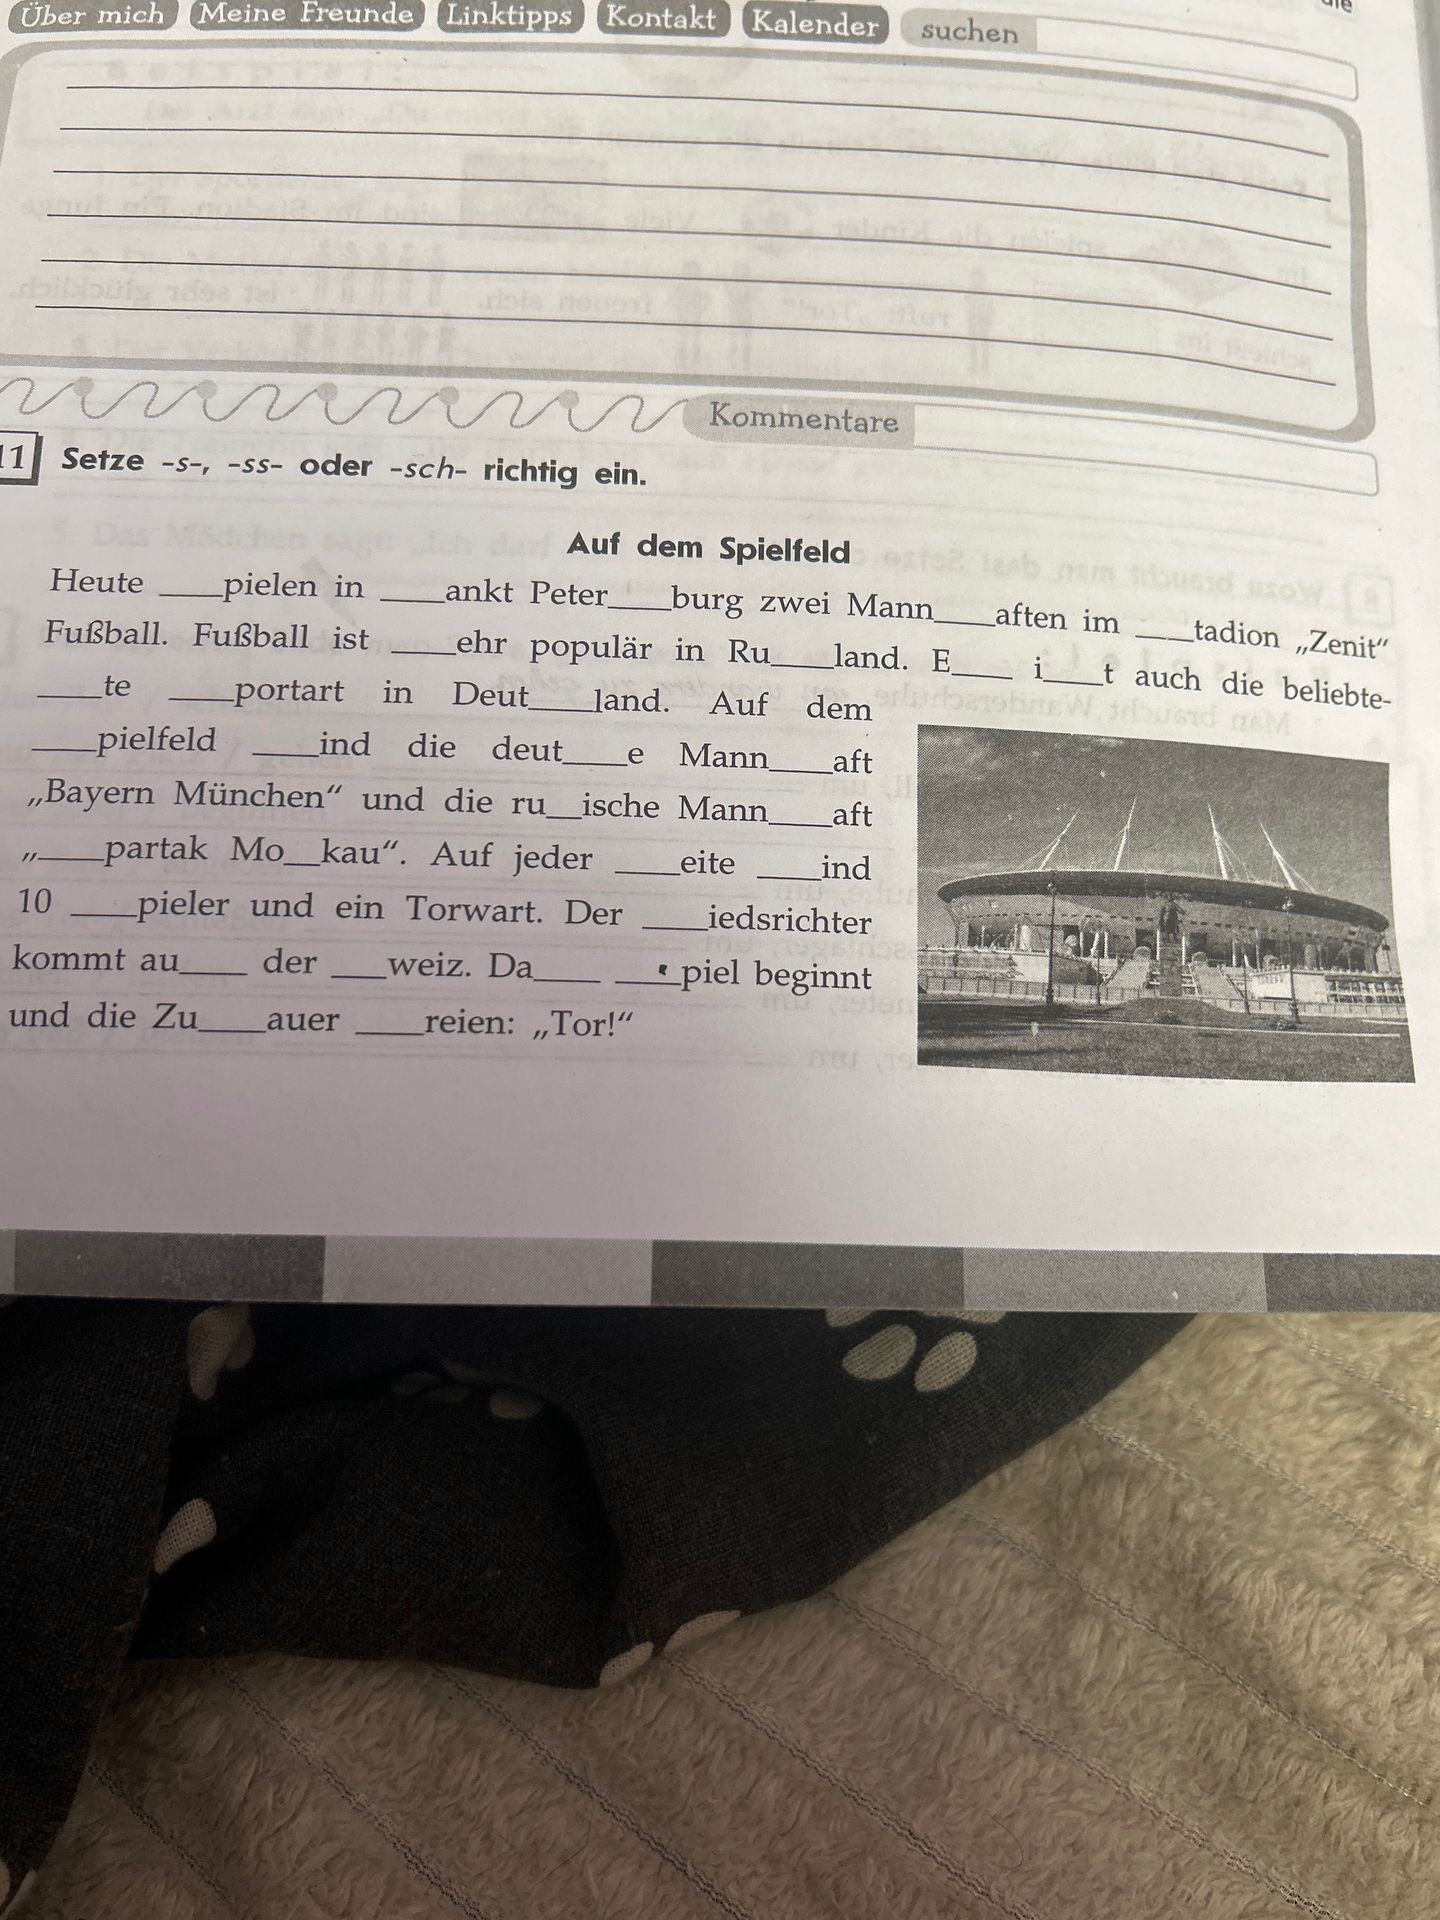 Über mich Meine Freunde Linktipps Kontakt Kalender suchen
Kommentare
11 Setze -s-, -ss- oder -sch- richtig ein.
Auf dem Spielfeld
Heute ____pielen in ____ankt Peter____burg zwei Mann____aften im ____tadion „Zenit“
Fußball. Fußball ist ____ehr populär in Ru____land. E____ i____t auch die beliebte-
____te ____portart in Deut____land. Auf dem
____pielfeld ____ind die deut____e Mann____aft
„Bayern München“ und die ru__ische Mann____aft
„____partak Mo__kau“. Auf jeder ____eite ____ind
10 ____pieler und ein Torwart. Der ____iedsrichter
kommt au____ der ____weiz. Da____ ____piel beginnt
und die Zu____auer ____reien: „Tor!“